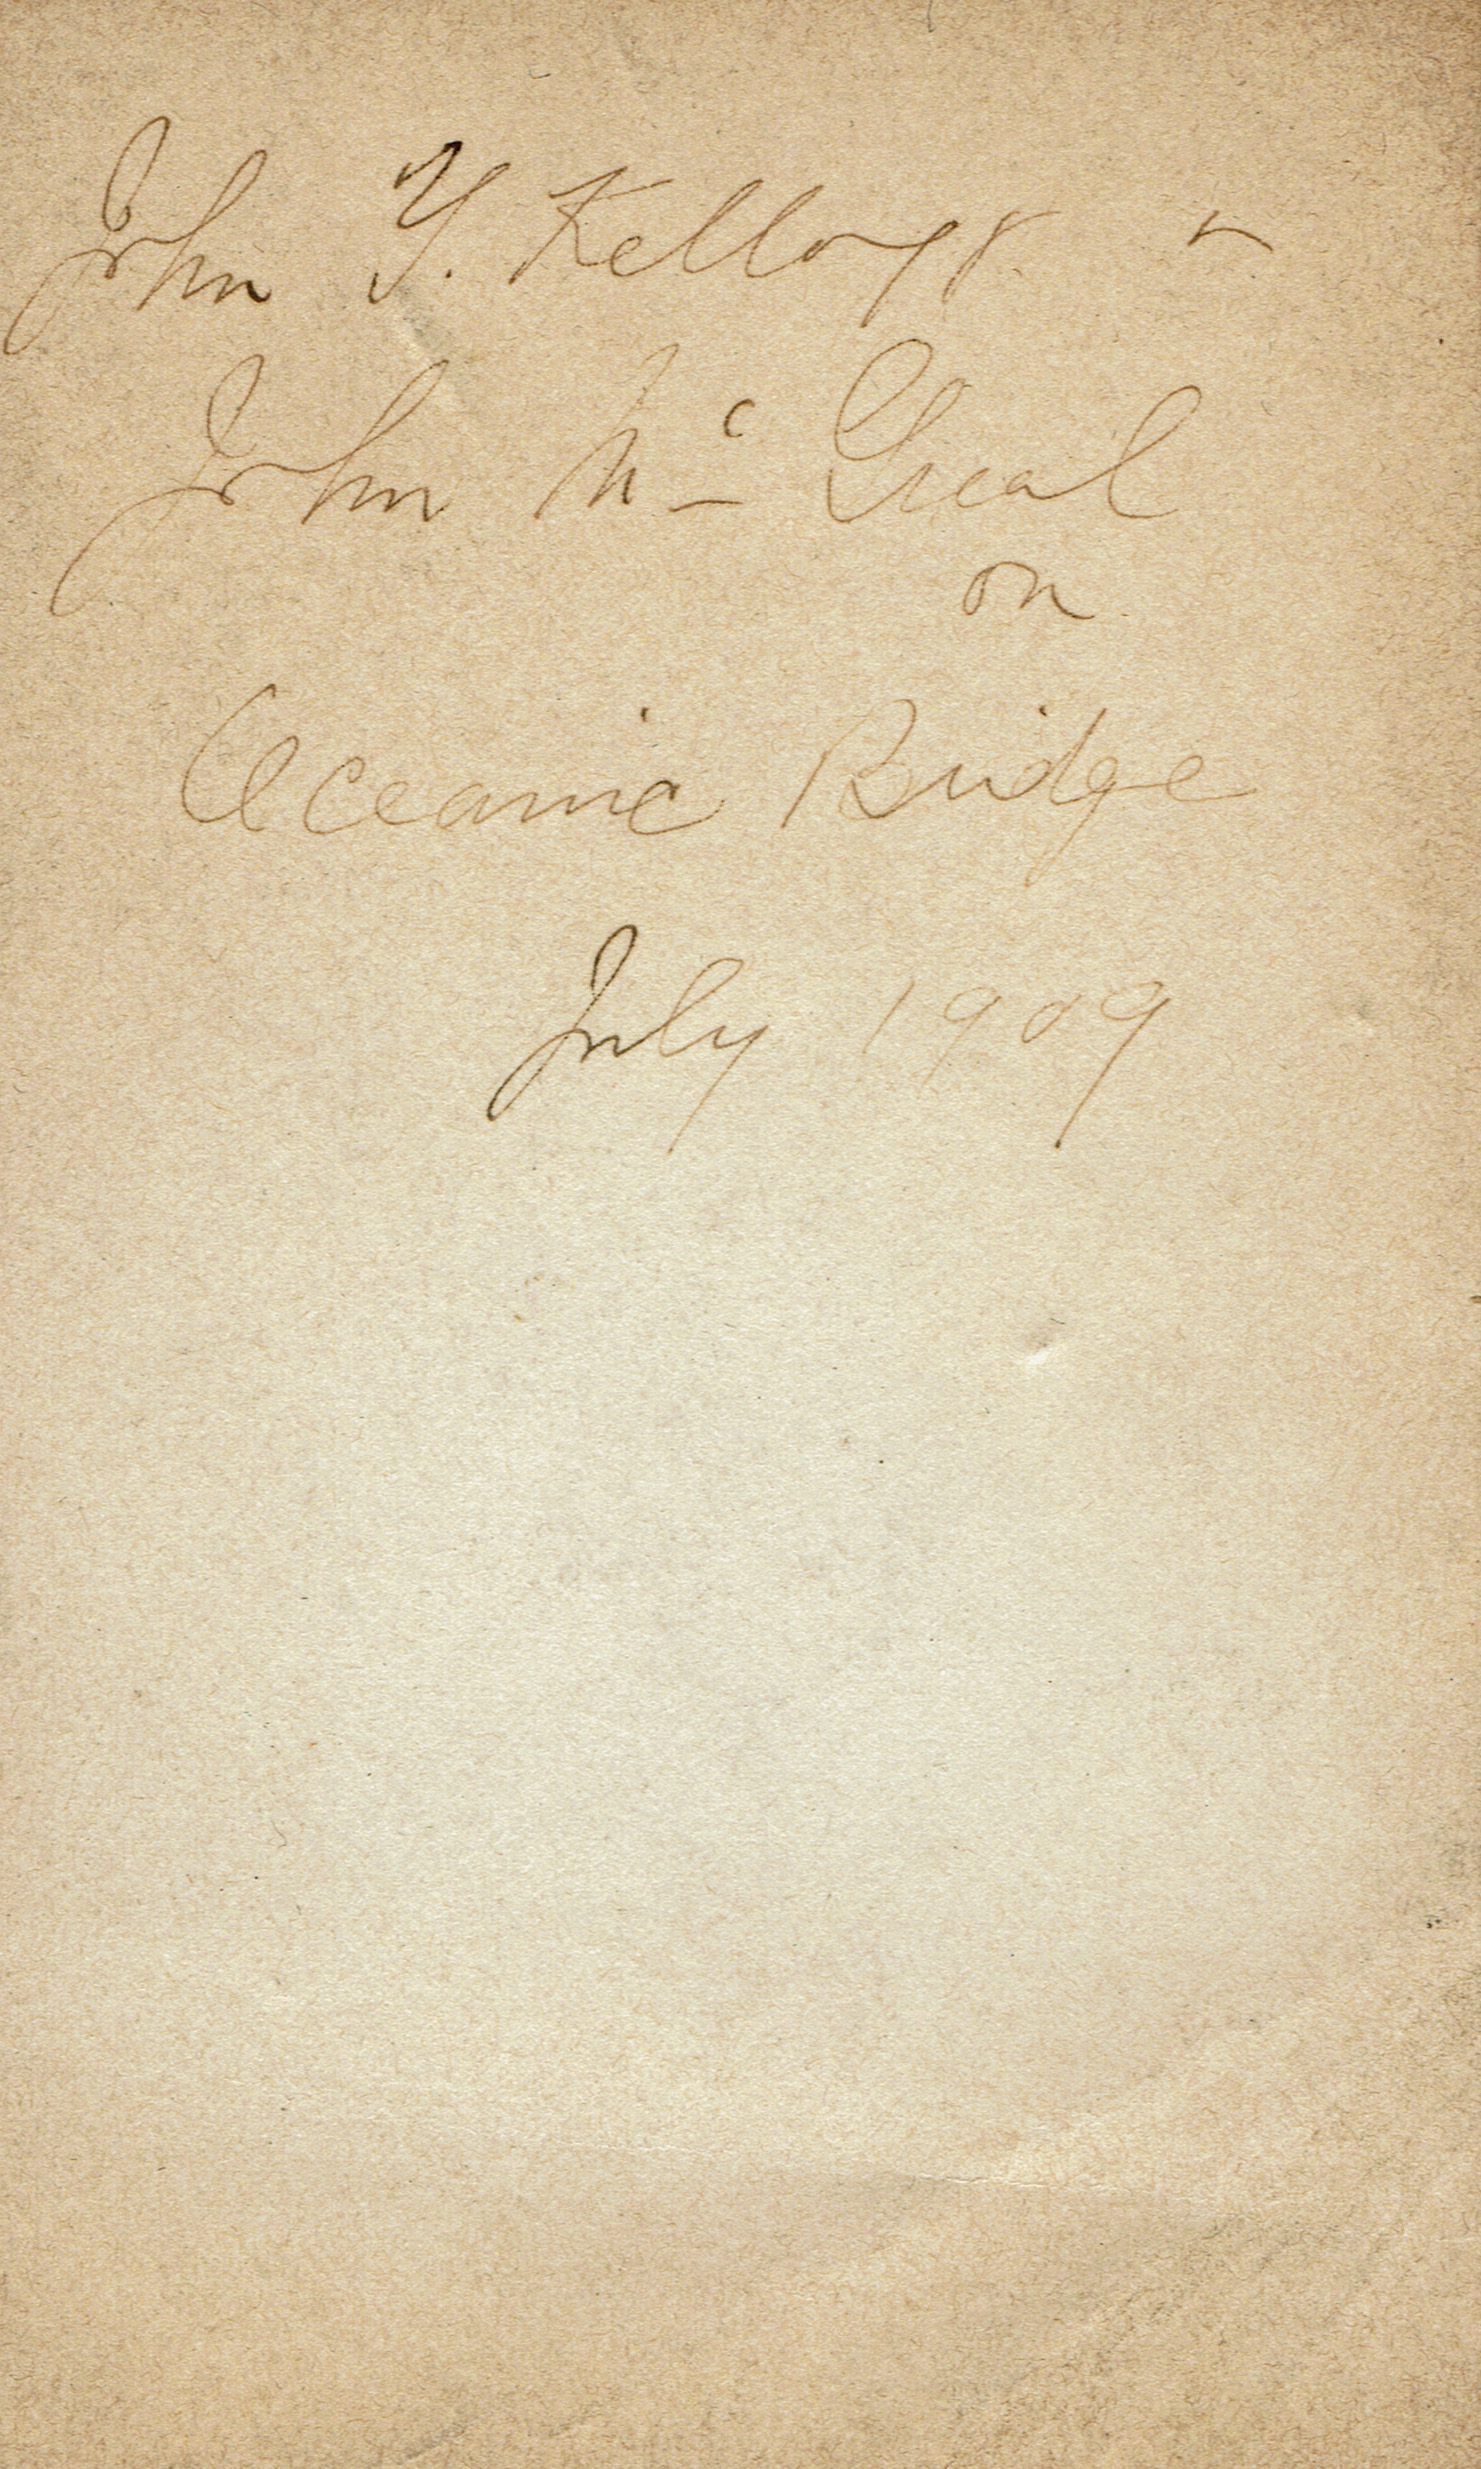 John Y. Kellogg
John Mc
on
Oceanic Bridge
July 1909